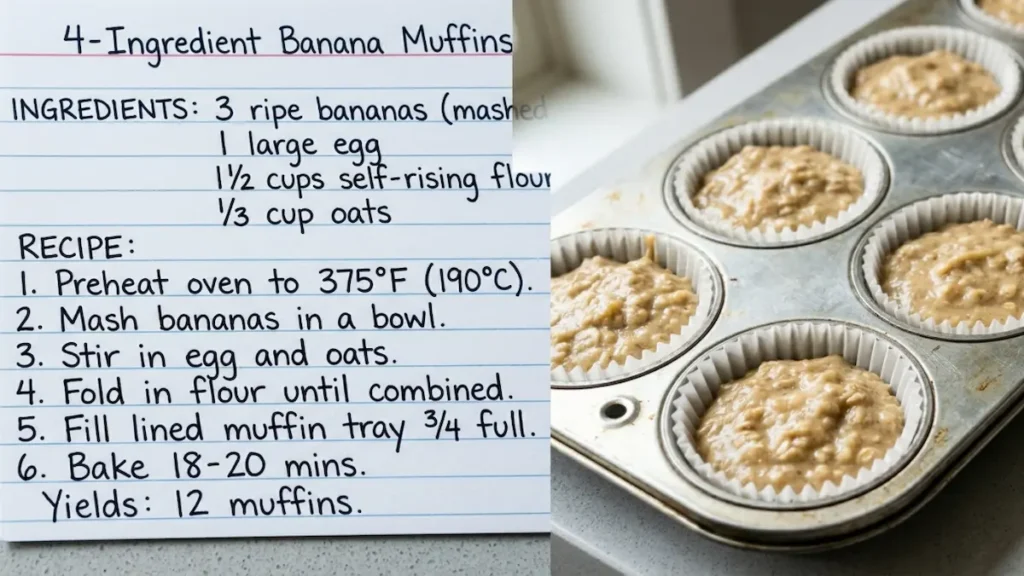 4-Ingredient Banana Muffins
INGREDIENTS: 3 ripe bananas (mashed
1 large egg
1½ cups self-rising flour
⅓ cup oats
RECIPE:
1. Preheat oven to 375°F (190°C).
2. Mash bananas in a bowl.
3. Stir in egg and oats.
4. Fold in flour until combined.
5. Fill lined muffin tray ¾ full.
6. Bake 18-20 mins.
Yields: 12 muffins.